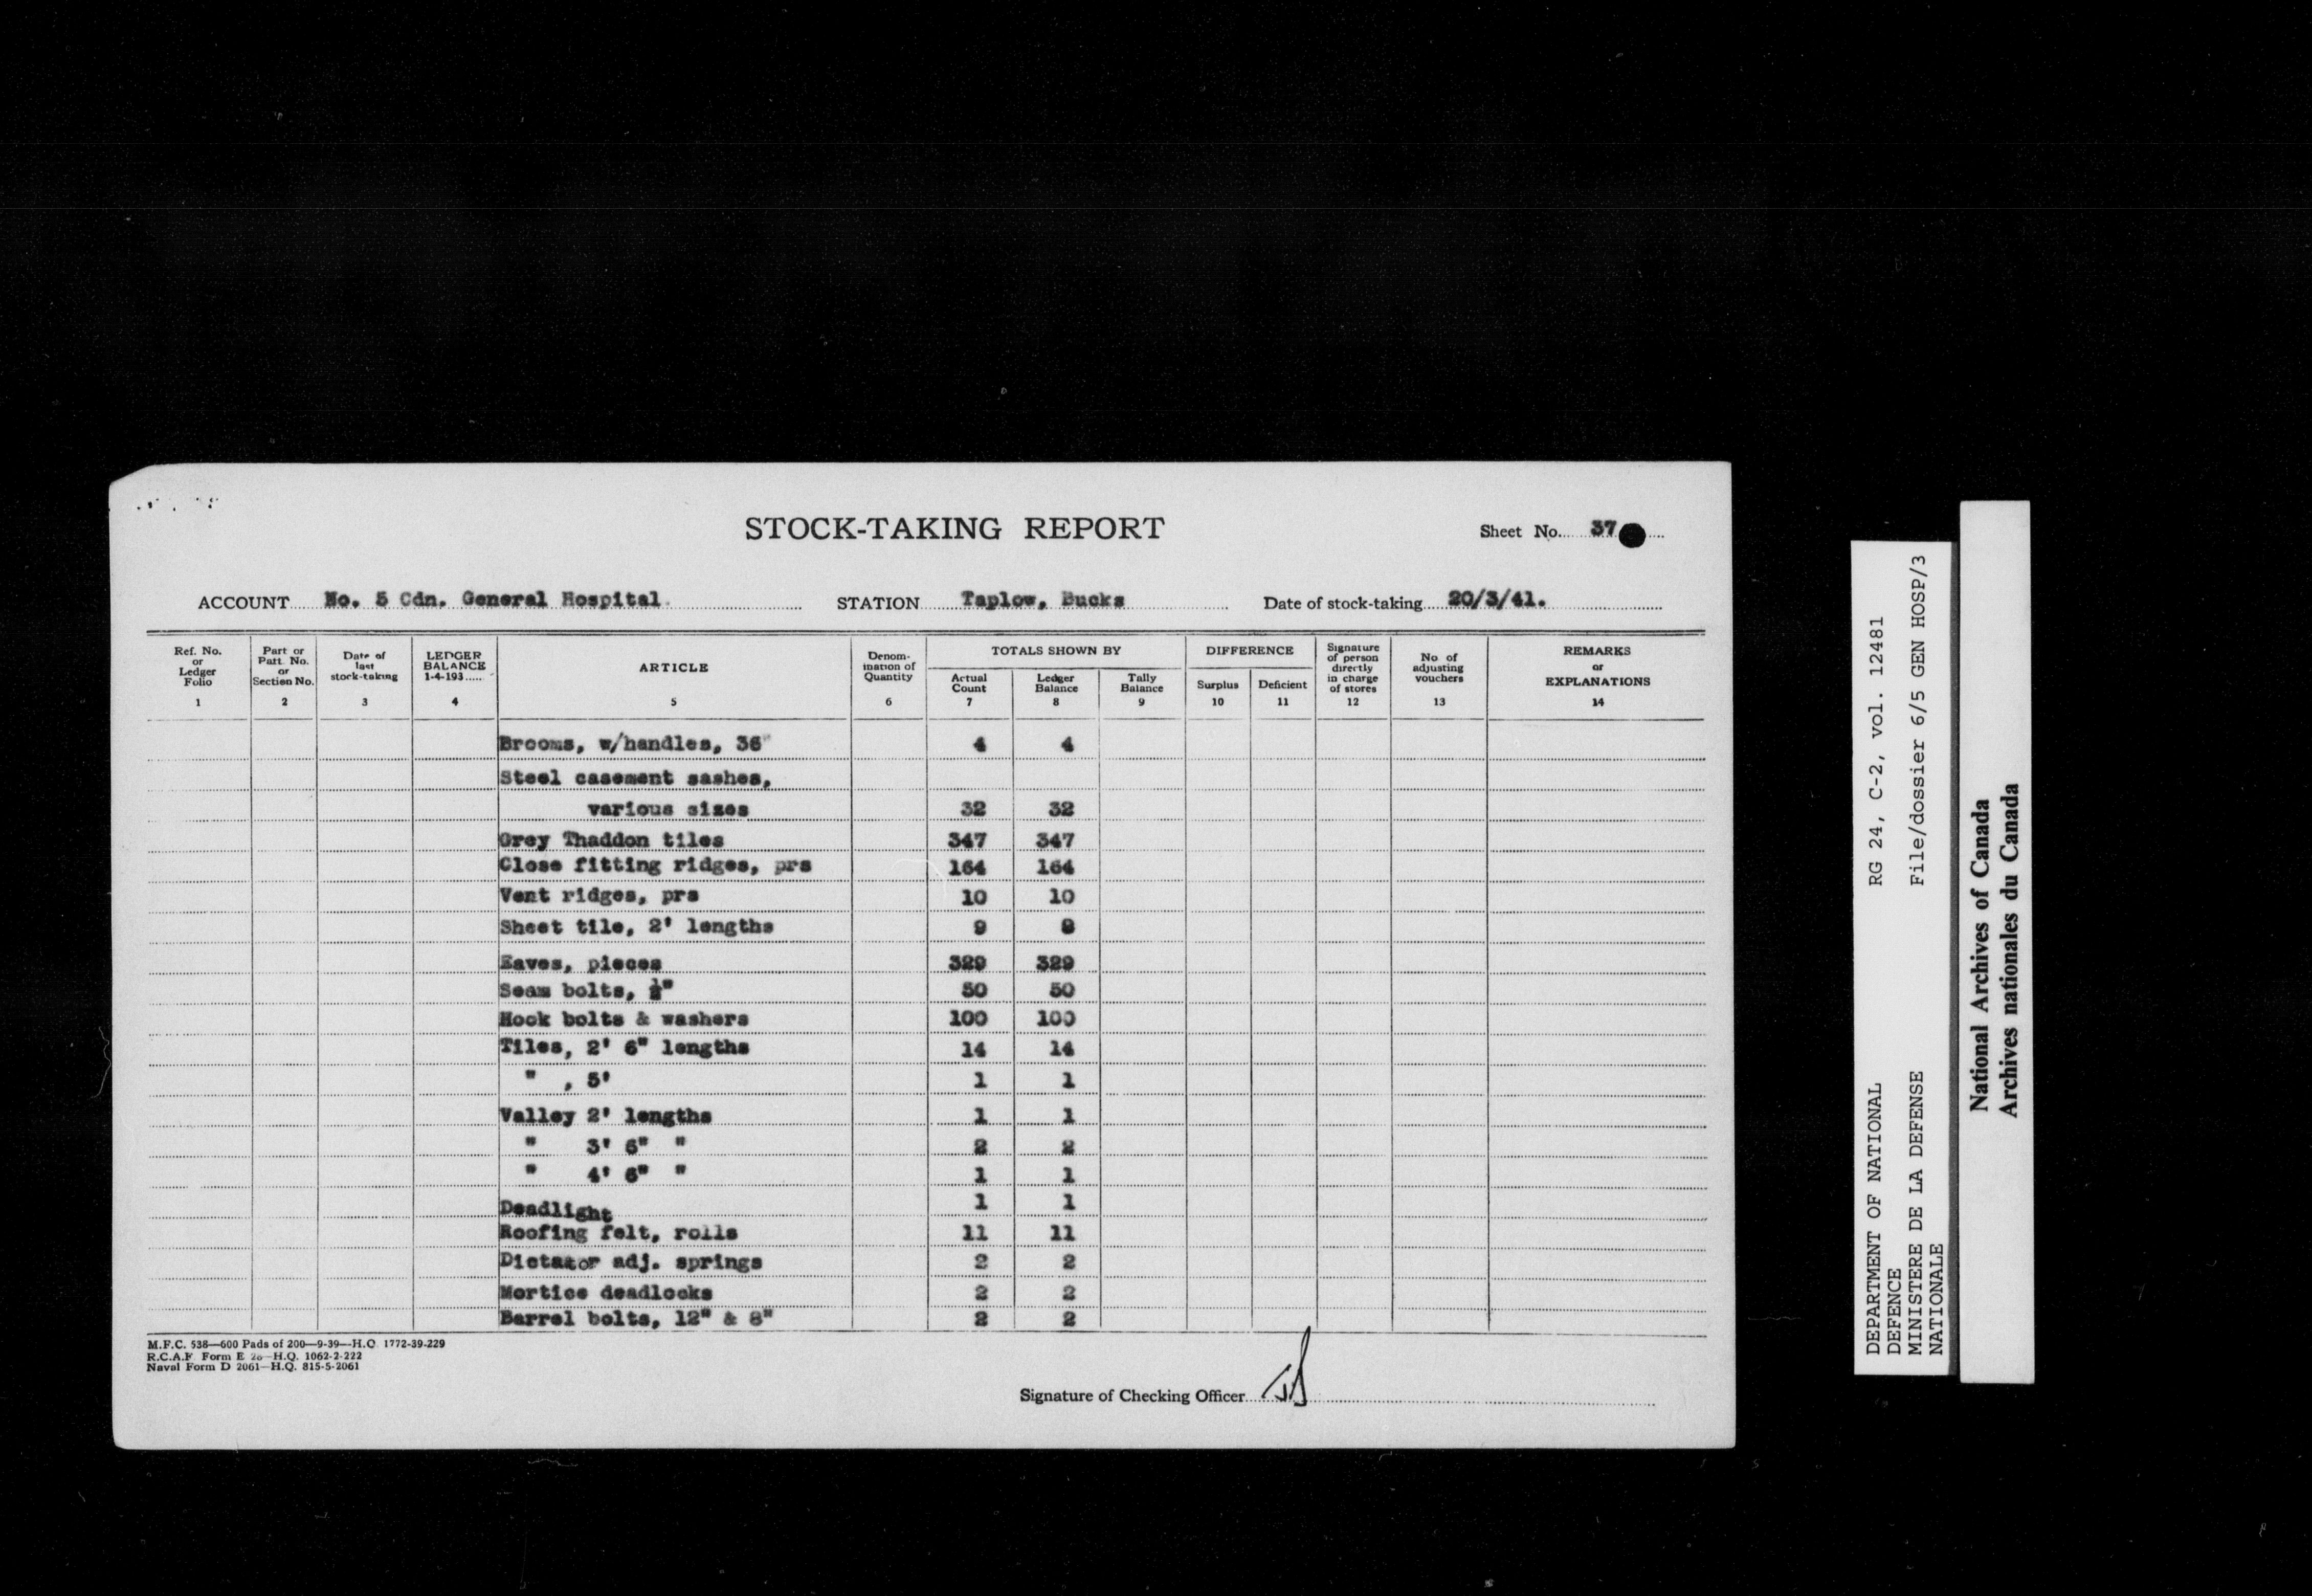 STOCK-TAKING REPORT
Sheet No. 37
ACCOUNT No. 5 Cdn. General Hospital STATION Taplow, Bucks Date of stock-taking 20/3/41.
Ref. No. or Ledger Folio 1
Part or Patt. No. or Section No. 2
Date of last stock-taking 3
LEDGER BALANCE 1-4-193..... 4
ARTICLE 5
Denom-ination of Quantity 6
TOTALS SHOWN BY
Actual Count 7
Ledger Balance 8
Tally Balance 9
DIFFERENCE
Surplus 10
Deficient 11
Signature of person directly in charge of stores 12
No. of adjusting vouchers 13
REMARKS or EXPLANATIONS 14
Brooms, w/handles, 36" 4 4
Steel casement sashes,
various sizes 32 32
Grey Thaddon tiles 347 347
Close fitting ridges, prs 164 164
Vent ridges, prs 10 10
Sheet tile, 2' lengths 9 9
Eaves, pieces 329 329
Seam bolts, ½" 50 50
Hook bolts & washers 100 100
Tiles, 2' 6" lengths 14 14
" , 5' 1 1
Valley 2' lengths 1 1
" 3' 6" " 2 2
" 4' 6" " 1 1
Deadlight 1 1
Roofing felt, rolls 11 11
Dictator adj. springs 2 2
Mortice deadlocks 2 2
Barrel bolts, 12" & 8" 2 2
M.F.C. 538—600 Pads of 200—9-39—H.Q. 1772-39-229
R.C.A.F. Form E 26—H.Q. 1062-2-222
Naval Form D 2061—H.Q. 815-5-2061
Signature of Checking Officer
DEPARTMENT OF NATIONAL RG 24, C-2, vol. 12481
DEFENCE
MINISTERE DE LA DEFENSE File/dossier 6/5 GEN HOSP/3
NATIONALE
National Archives of Canada
Archives nationales du Canada